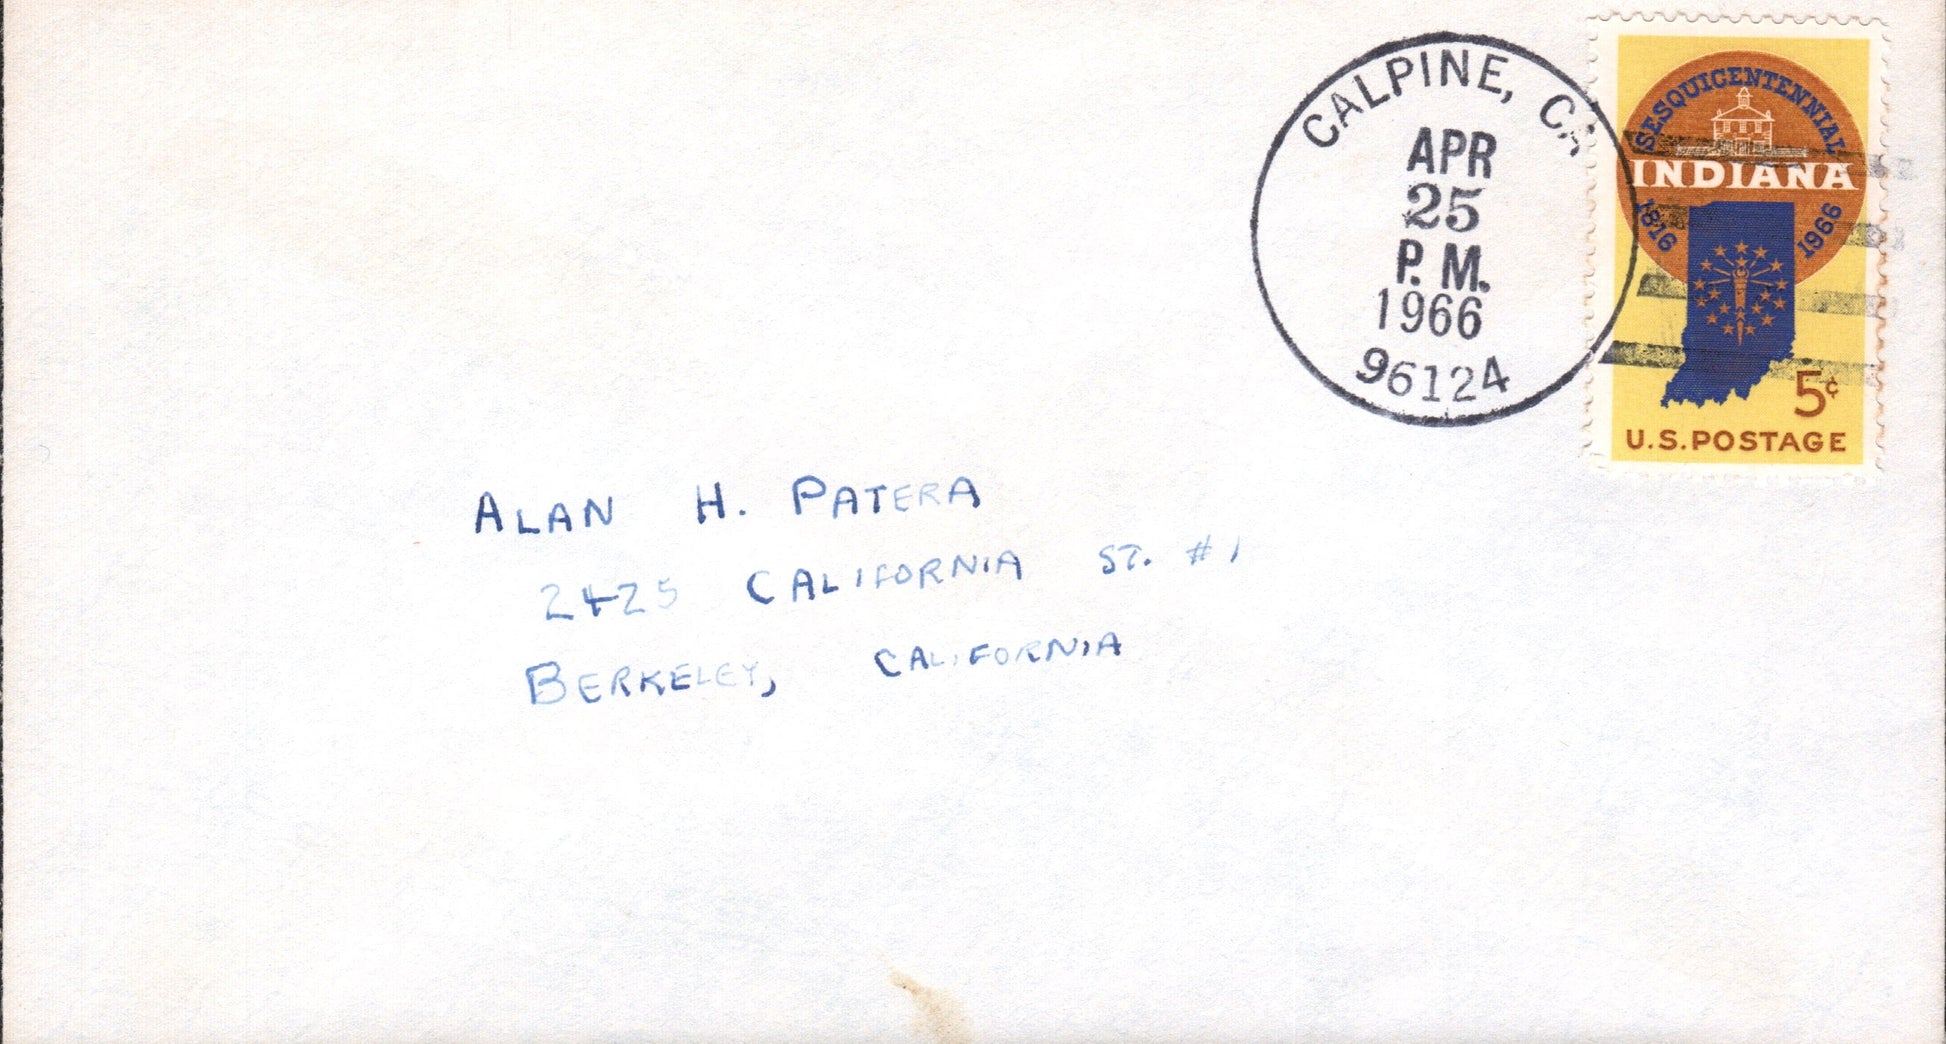 CALPINE, CA
APR
25
P.M.
1966
96124
SESQUICENTENNIAL
INDIANA
1816 1966
5¢
U.S. POSTAGE
ALAN H. PATERA
2425 CALIFORNIA ST. #1
BERKELEY, CALIFORNIA